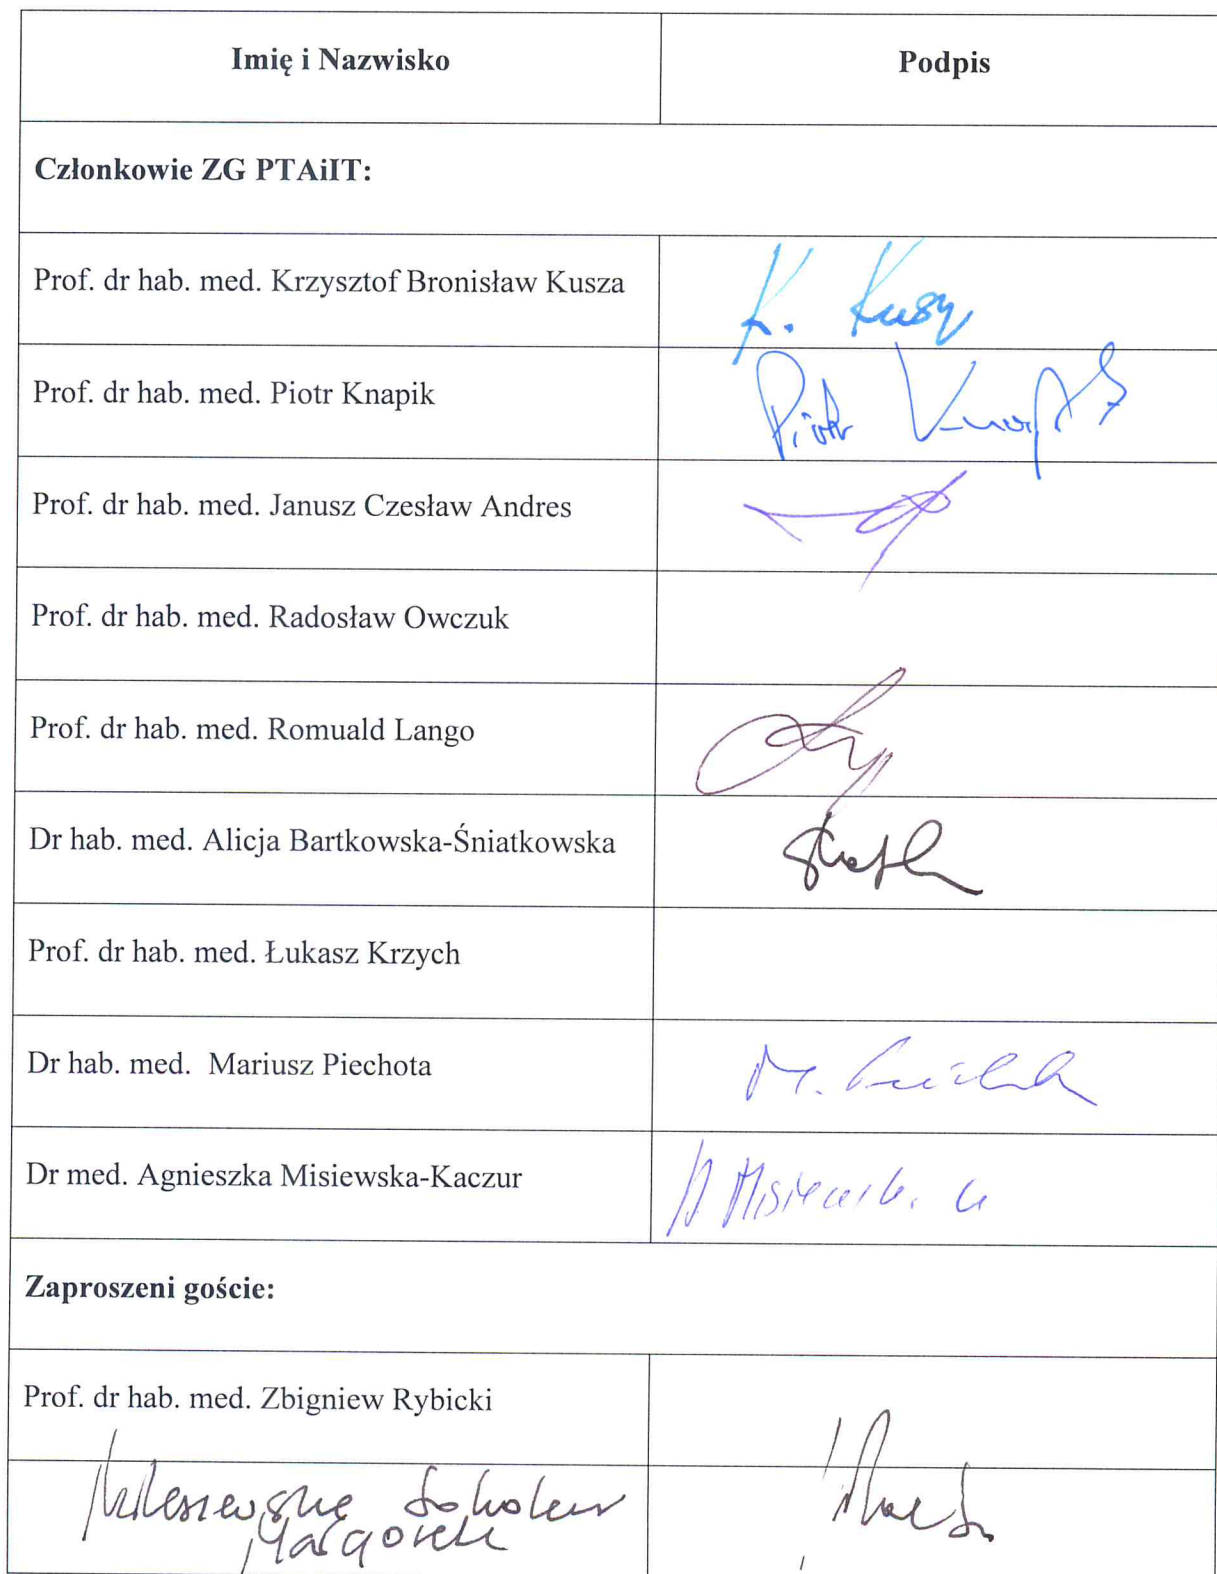 Imię i Nazwisko Podpis
Członkowie ZG PTAiIT:
Prof. dr hab. med. Krzysztof Bronisław Kusza K. Kusza
Prof. dr hab. med. Piotr Knapik Piotr Knapik
Prof. dr hab. med. Janusz Czesław Andres
Prof. dr hab. med. Radosław Owczuk
Prof. dr hab. med. Romuald Lango
Dr hab. med. Alicja Bartkowska-Śniatkowska
Prof. dr hab. med. Łukasz Krzych
Dr hab. med. Mariusz Piechota M.
Dr med. Agnieszka Misiewska-Kaczur A
Zaproszeni goście:
Prof. dr hab. med. Zbigniew Rybicki